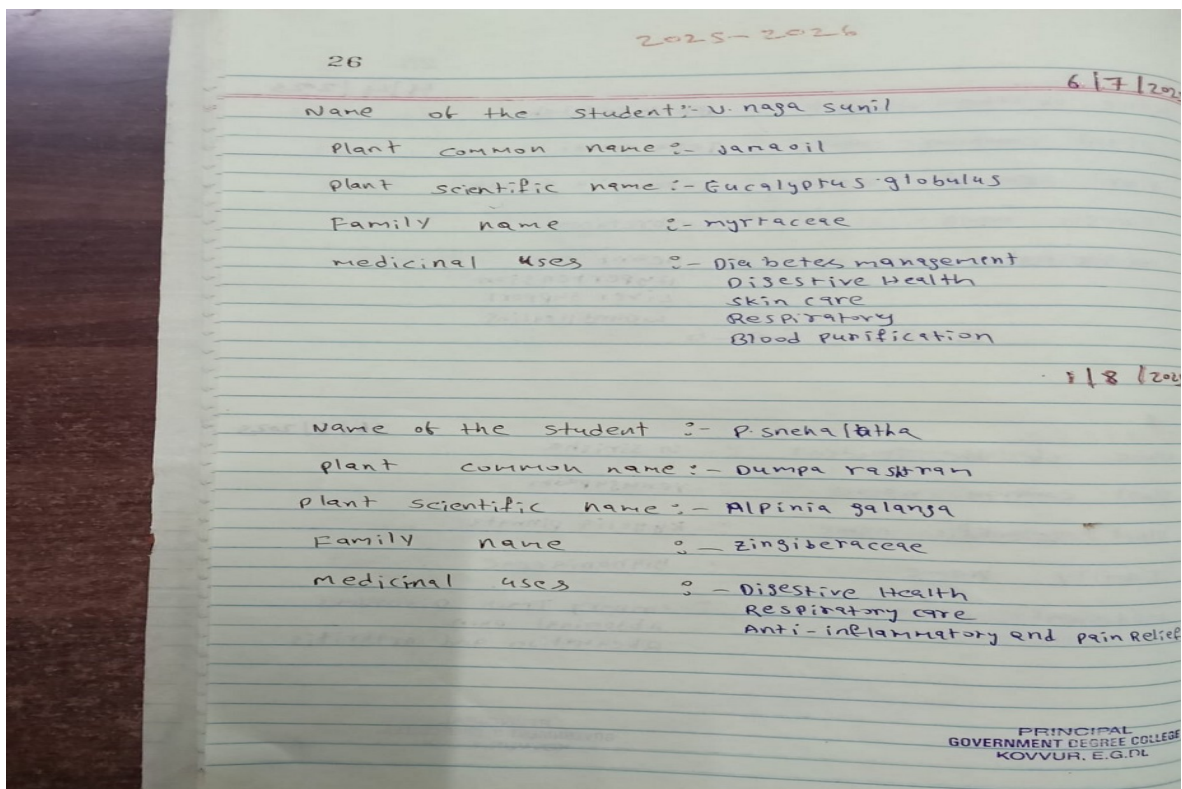 2025-2026
26
6/7/202
Name of the student:- V. naga sunil
Plant common name :- Janaoil
plant scientific name :- Eucalyptus globulus
Family name :- myrtaceae
medicinal uses :- Diabetes management
Digestive Health
skin care
Respiratory
Blood purification
/8/202
Name of the student :- P. sneha latha
plant common name :- Dumpa rashtran
plant scientific name :- Alpinia galanga
Family name :- zingiberaceae
medicinal uses :- Digestive Health
Respiratory care
Anti-inflammatory and pain Relief
PRINCIPAL
GOVERNMENT DEGREE COLLEGE
KOVVUR. E.G.Dt.